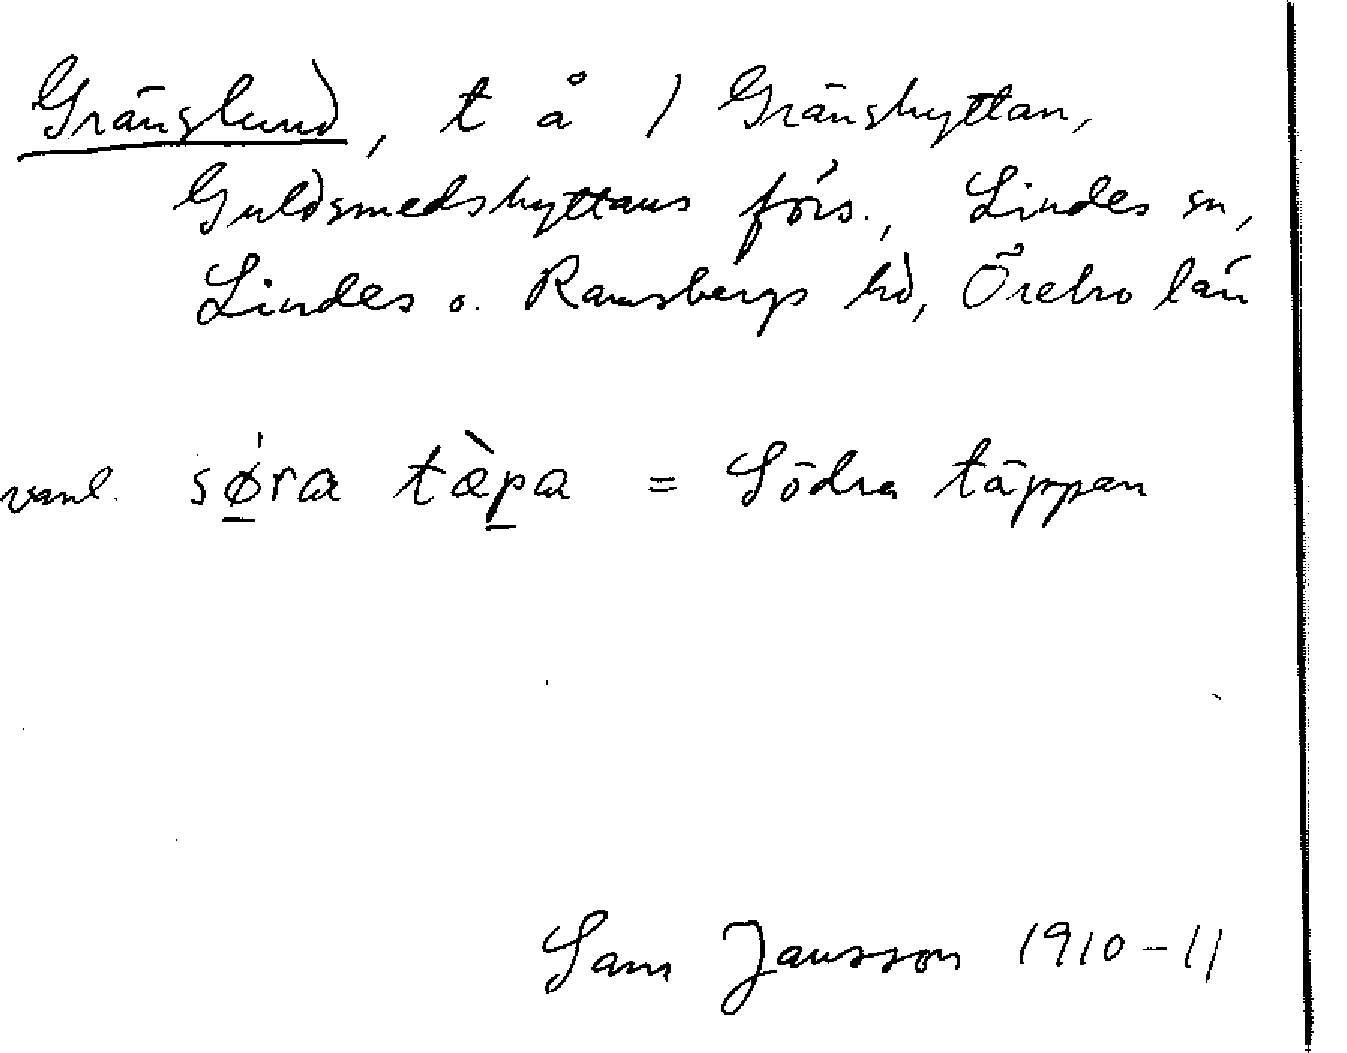 Gränslund, t å / Gränshyttan,
Guldsmedshyttans förs., Lindes sn,
Lindes o. Ramsbergs hd, Örebro län
vanl. sø̠ra tæ̀p̠a = Södra täppan
Sam Jansson 1910-11